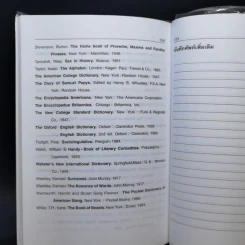 Stevenson, Burton. The Home Book of Proverbs, Maxims and Familiar
Phrases. New York : Macmillan, 1948.
Tannahill, Reay. Sex in History.
Taylor, Isaac. The Alphabet. London : Kegan Paul, Trench & Co., 1883.
The American College Dictionary. New York : Random House,
The Diary of Samuel Pepys. Edited by Henry B. Wheatley.
Random House
The Encyclopaedia Americana. New York : The Americana Corporation.
The Encyclopaedia Britannica. Chicago : Britannica, Inc.
The New College Standard Dictionary. New York : Funk & Wagnalls
Co., 1947.
The Oxford English Dictionary. Oxford : Clarendon Press,
English Dictionary. 2nd ed. Oxford : Clarendon,
Trudgill, Peter. Sociolinguistics. Penguin,
Walsh, William S. Handy-Book of Literary Curiosities. Philadelphia :
Lippincott, 1893.
Webster's New International Dictionary. Springfield, Mass. : G. &
Merriam Co.,
Weekley, Ernest. Surnames. John Murray, 1917.
Weekley, Ernest. The Romance of Words. John Murray, 1917.
Wentworth, Harold and Stuart Berg Flexner. The Pocket Dictionary of
American Slang. New York : Pocket Books, 1968.
White, T.H. trans. The Book of Beasts. New York :
บันทึกศัพท์เพิ่มเติม